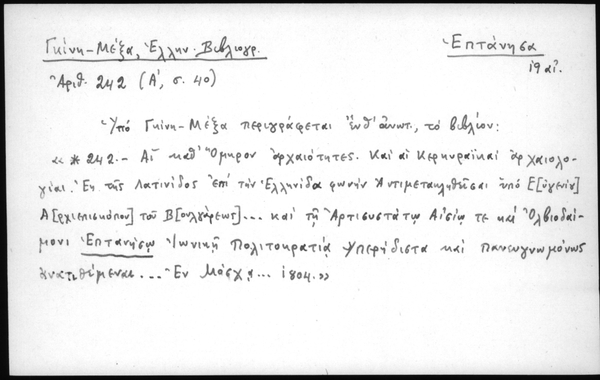 Γκίνη-Μέξα, Ἑλλην. Βιβλιογρ.
Ἑπτάνησα
Ἀριθ. 242 (Α΄, σ. 40)
19 αἰ.
Ὑπό Γκίνη-Μέξα περιγράφεται ἔνθ' ἀνωτ., τό βιβλίον:
« * 242.- Αἱ καθ' Ὅμηρον ἀρχαιότητες. Καί αἱ Κερκυραϊκαί ἀρχαιολο-
γίαι. Ἐκ τῆς Λατινίδος ἐπί τήν Ἑλληνίδα φωνήν Ἀντιμεταληφθεῖσαι ὑπό Ε[ὐγενίου]
Α[ρχιεπισκόπου] τοῦ Β[ουλγάρεως]... καί τῇ Ἀρτισυστάτῳ Αἰσίῳ τε καί Ὀλβιοδαί-
μονι Ἑπτανήσῳ Ἰωνικῇ Πολιτοκρατίᾳ Ὑπερήδιστα καί Πανευγνωμόνως
Ἀνατιθέμεναι... Ἐν Μόσχᾳ... 1804.»